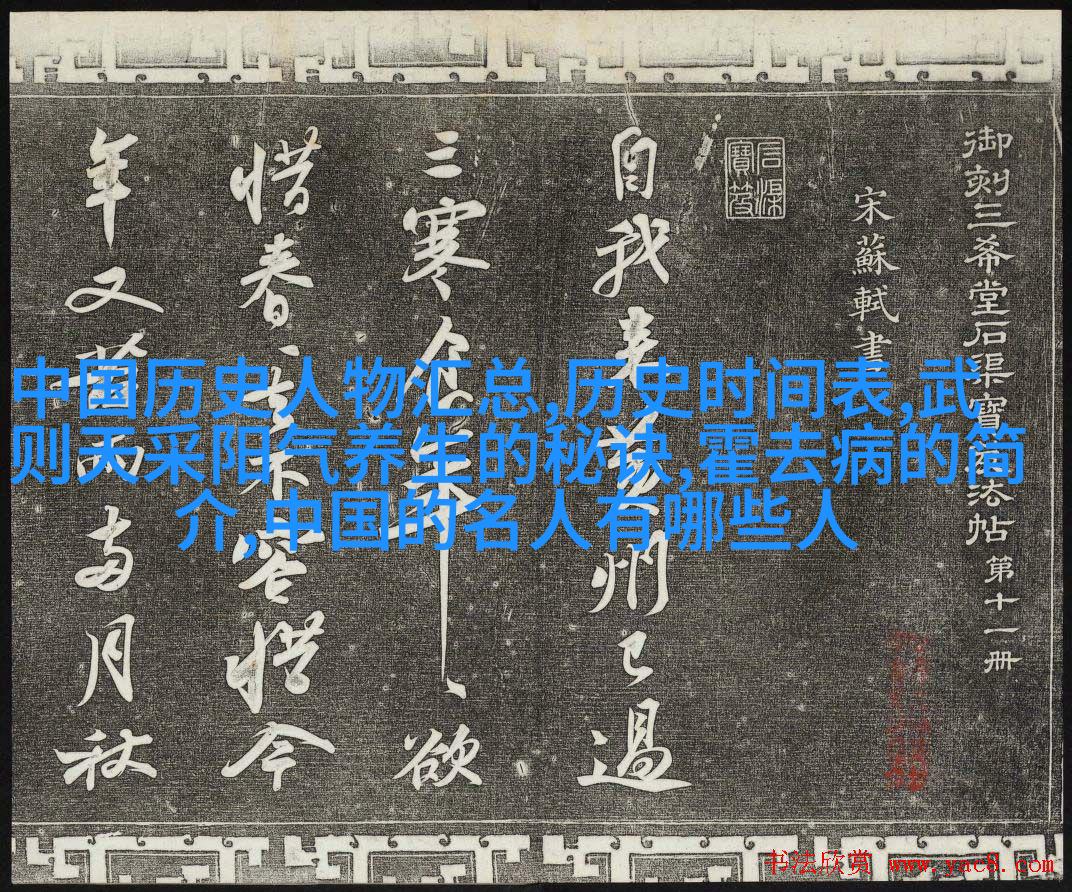 御刻三希堂石渠寶笈法帖 第十一册
宋蘇軾書
石渠寶笈
自我来黄州已過
三寒食年、欲
惜春、去不容惜今
年又苦雨兩月秋
中国历史人物汇总,历史时间表,武
则天采阳气养生的秘诀,霍去病的简
介,中国的名人有哪些人
书法欣赏 www.yac8.com